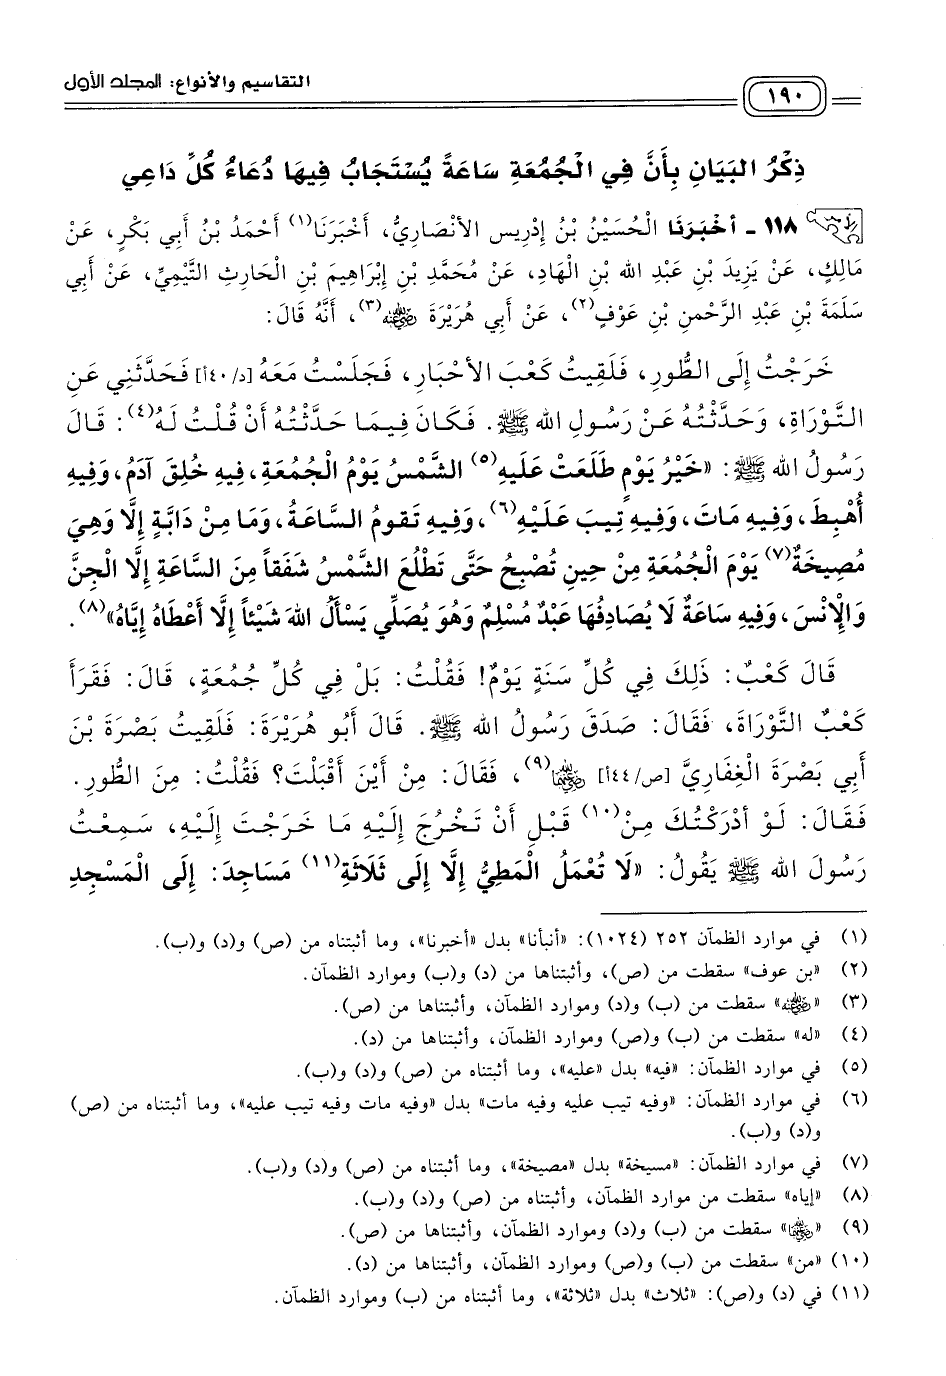 التقاسيم والأنواع: المجلد الأول
١٩٠
ذِكْرُ البَيَانِ بِأَنَّ فِي الْجُمُعَةِ سَاعَةً يُسْتَجَابُ فِيهَا دُعَاءُ كُلِّ دَاعِي
١١٨ - أَخْبَرَنَا الْحُسَيْنُ بْنُ إِدْرِيس الأَنْصَارِيُّ، أَخْبَرَنَا(١) أَحْمَدُ بْنُ أَبِي بَكْرٍ، عَنْ
مَالِكٍ، عَنْ يَزِيدَ بْنِ عَبْدِ الله بْنِ الْهَادِ، عَنْ مُحَمَّدِ بْنِ إِبْرَاهِيمَ بْنِ الْحَارِثِ التَّيْمِيِّ، عَنْ أَبِي
سَلَمَةَ بْنِ عَبْدِ الرَّحْمنِ بْنِ عَوْفٍ(٢)، عَنْ أَبِي هُرَيْرَةَ رَضِيَ اللهُ عَنْهُ(٣)، أَنَّهُ قَالَ:
خَرَجْتُ إِلَى الطُّورِ، فَلَقِيتُ كَعْبَ الأَحْبَارِ، فَجَلَسْتُ مَعَهُ [د/٤٠أ] فَحَدَّثَنِي عَنِ
التَّوْرَاةِ، وَحَدَّثْتُهُ عَنْ رَسُولِ الله ﷺ. فَكَانَ فِيمَا حَدَّثْتُهُ أَنْ قُلْتُ لَهُ(٤): قَالَ
رَسُولُ الله ﷺ: «خَيْرُ يَوْمٍ طَلَعَتْ عَلَيهِ(٥) الشَّمْسُ يَوْمُ الْجُمُعَةِ، فِيهِ خُلِقَ آدَمُ، وَفِيهِ
أُهْبِطَ، وَفِيهِ مَاتَ، وَفِيهِ تِيبَ عَلَيْهِ(٦)، وَفِيهِ تَقومُ السَّاعَةُ، وَمَا مِنْ دَابَّةٍ إِلَّا وَهِيَ
مُصِيخَةٌ(٧) يَوْمَ الْجُمُعَةِ مِنْ حِينِ تُصْبِحُ حَتَّى تَطْلُعَ الشَّمْسُ شَفَقاً مِنَ السَّاعَةِ إِلَّا الْجِنَّ
وَالإِنْسَ، وَفِيهِ سَاعَةٌ لَا يُصَادِفُهَا عَبْدٌ مُسْلِمٌ وَهُوَ يُصَلِّي يَسْأَلُ اللهَ شَيْئاً إِلَّا أَعْطَاهُ إِيَّاهُ»(٨).
قَالَ كَعْبٌ: ذَلِكَ فِي كُلِّ سَنَةٍ يَوْمٌ! فَقُلْتُ: بَلْ فِي كُلِّ جُمُعَةٍ، قَالَ: فَقَرَأَ
كَعْبٌ التَّوْرَاةَ، فَقَالَ: صَدَقَ رَسُولُ الله ﷺ. قَالَ أَبُو هُرَيْرَةَ: فَلَقِيتُ بَصْرَةَ بْنَ
أَبِي بَصْرَةَ الْغِفَارِيَّ [ص/٤٤أ] رَضِيَ اللهُ عَنْهُمَا(٩)، فَقَالَ: مِنْ أَيْنَ أَقْبَلْتَ؟ فَقُلْتُ: مِنَ الطُّورِ.
فَقَالَ: لَوْ أَدْرَكْتُكَ مِنْ(١٠) قَبْلِ أَنْ تَخْرُجَ إِلَيْهِ مَا خَرَجْتَ إِلَيْهِ، سَمِعْتُ
رَسُولَ الله ﷺ يَقُولُ: «لَا تُعْمَلُ الْمَطِيُّ إِلَّا إِلَى ثَلَاثَةِ(١١) مَسَاجِدَ: إِلَى الْمَسْجِدِ
(١) في موارد الظمآن ٢٥٢ (١٠٢٤): «أنبأنا» بدل «أخبرنا»، وما أثبتناه من (ص) و(د) و(ب).
(٢) «بن عوف» سقطت من (ص)، وأثبتناها من (د) و(ب) وموارد الظمآن.
(٣) «رَضِيَ اللهُ عَنْهُ» سقطت من (ب) و(د) وموارد الظمآن، وأثبتناها من (ص).
(٤) «له» سقطت من (ب) و(ص) وموارد الظمآن، وأثبتناها من (د).
(٥) في موارد الظمآن: «فيه» بدل «عليه»، وما أثبتناه من (ص) و(د) و(ب).
(٦) في موارد الظمآن: «وفيه تيب عليه وفيه مات» بدل «وفيه مات وفيه تيب عليه»، وما أثبتناه من (ص)
و(د) و(ب).
(٧) في موارد الظمآن: «مسيخة» بدل «مصيخة»، وما أثبتناه من (ص) و(د) و(ب).
(٨) «إياه» سقطت من موارد الظمآن، وأثبتناه من (ص) و(د) و(ب).
(٩) «رَضِيَ اللهُ عَنْهُمَا» سقطت من (ب) و(د) وموارد الظمآن، وأثبتناها من (ص).
(١٠) «من» سقطت من (ب) و(ص) وموارد الظمآن، وأثبتناها من (د).
(١١) في (د) و(ص): «ثلاث» بدل «ثلاثة»، وما أثبتناه من (ب) وموارد الظمآن.